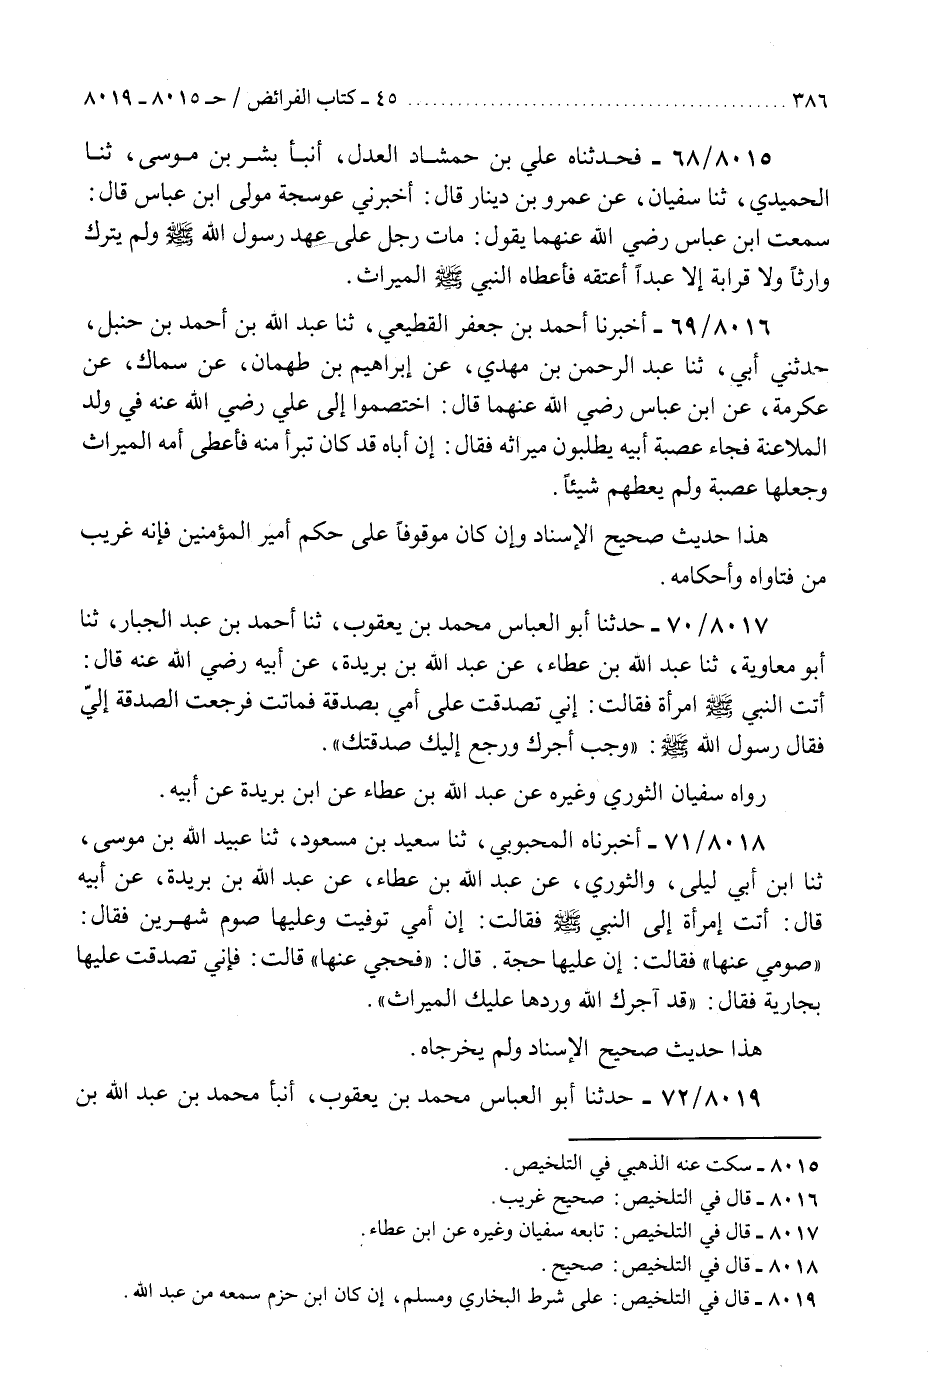 ٣٨٦ ........................................ ٤٥ ـ كتاب الفرائض / حـ ٨٠١٥ ـ ٨٠١٩
٦٨/٨٠١٥ ـ فحدثناه علي بن حمشاد العدل، أنبأ بشر بن موسى، ثنا
الحميدي، ثنا سفيان، عن عمرو بن دينار قال: أخبرني عوسجة مولى ابن عباس قال:
سمعت ابن عباس رضي الله عنهما يقول: مات رجل على عهد رسول الله ﷺ ولم يترك
وارثاً ولا قرابة إلا عبداً أعتقه فأعطاه النبي ﷺ الميراث.
٦٩/٨٠١٦ ـ أخبرنا أحمد بن جعفر القطيعي، ثنا عبد الله بن أحمد بن حنبل،
حدثني أبي، ثنا عبد الرحمن بن مهدي، عن إبراهيم بن طهمان، عن سماك، عن
عكرمة، عن ابن عباس رضي الله عنهما قال: اختصموا إلى علي رضي الله عنه في ولد
الملاعنة فجاء عصبة أبيه يطلبون ميراثه فقال: إن أباه قد كان تبرأ منه فأعطى أمه الميراث
وجعلها عصبة ولم يعطهم شيئاً.
هذا حديث صحيح الإسناد وإن كان موقوفاً على حكم أمير المؤمنين فإنه غريب
من فتاواه وأحكامه.
٧٠/٨٠١٧ ـ حدثنا أبو العباس محمد بن يعقوب، ثنا أحمد بن عبد الجبار، ثنا
أبو معاوية، ثنا عبد الله بن عطاء، عن عبد الله بن بريدة، عن أبيه رضي الله عنه قال:
أتت النبي ﷺ امرأة فقالت: إني تصدقت على أمي بصدقة فماتت فرجعت الصدقة إليّ
فقال رسول الله ﷺ: «وجب أجرك ورجع إليك صدقتك».
رواه سفيان الثوري وغيره عن عبد الله بن عطاء عن ابن بريدة عن أبيه.
٧١/٨٠١٨ ـ أخبرناه المحبوبي، ثنا سعيد بن مسعود، ثنا عبيد الله بن موسى،
ثنا ابن أبي ليلى، والثوري، عن عبد الله بن عطاء، عن عبد الله بن بريدة، عن أبيه
قال: أتت إمرأة إلى النبي ﷺ فقالت: إن أمي توفيت وعليها صوم شهرين فقال:
«صومي عنها» فقالت: إن عليها حجة. قال: «فحجي عنها» قالت: فإني تصدقت عليها
بجارية فقال: «قد آجرك الله وردها عليك الميراث».
هذا حديث صحيح الإسناد ولم يخرجاه.
٧٢/٨٠١٩ ـ حدثنا أبو العباس محمد بن يعقوب، أنبأ محمد بن عبد الله بن
٨٠١٥ ـ سكت عنه الذهبي في التلخيص.
٨٠١٦ ـ قال في التلخيص: صحيح غريب.
٨٠١٧ ـ قال في التلخيص: تابعه سفيان وغيره عن ابن عطاء.
٨٠١٨ ـ قال في التلخيص: صحيح.
٨٠١٩ ـ قال في التلخيص: على شرط البخاري ومسلم، إن كان ابن حزم سمعه من عبد الله.